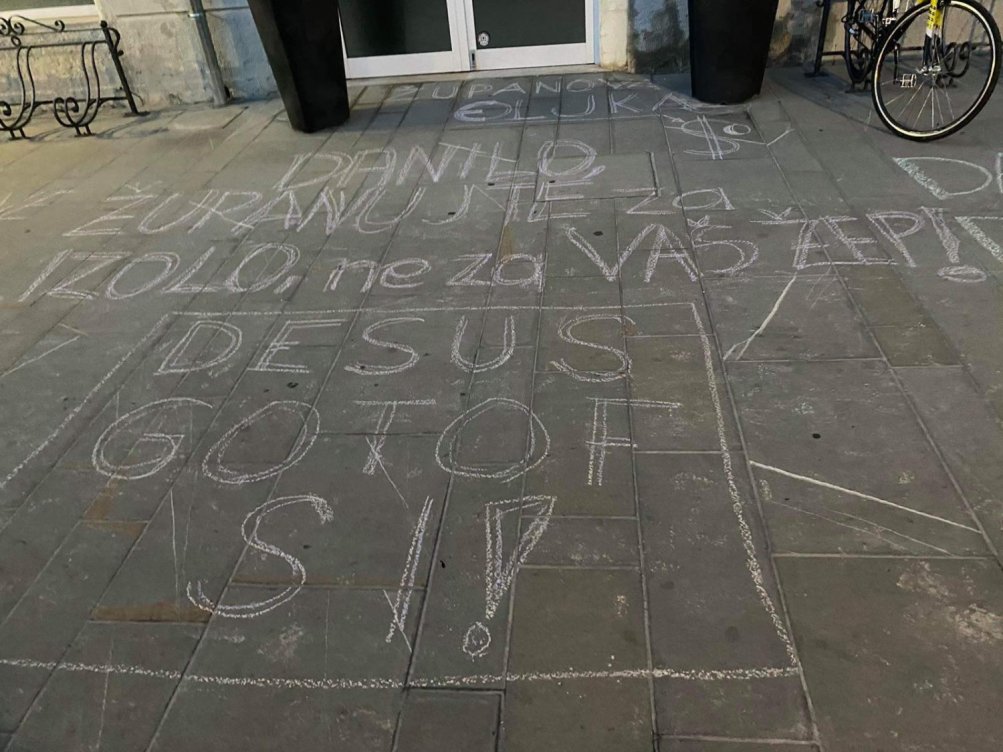 ŽUPANOVA
OLJKA
$%
DANILO,
ŽUPANUJTE za
IZOLO, ne za VAŠ ŽEP!
DESUS
GOTOF
SI!